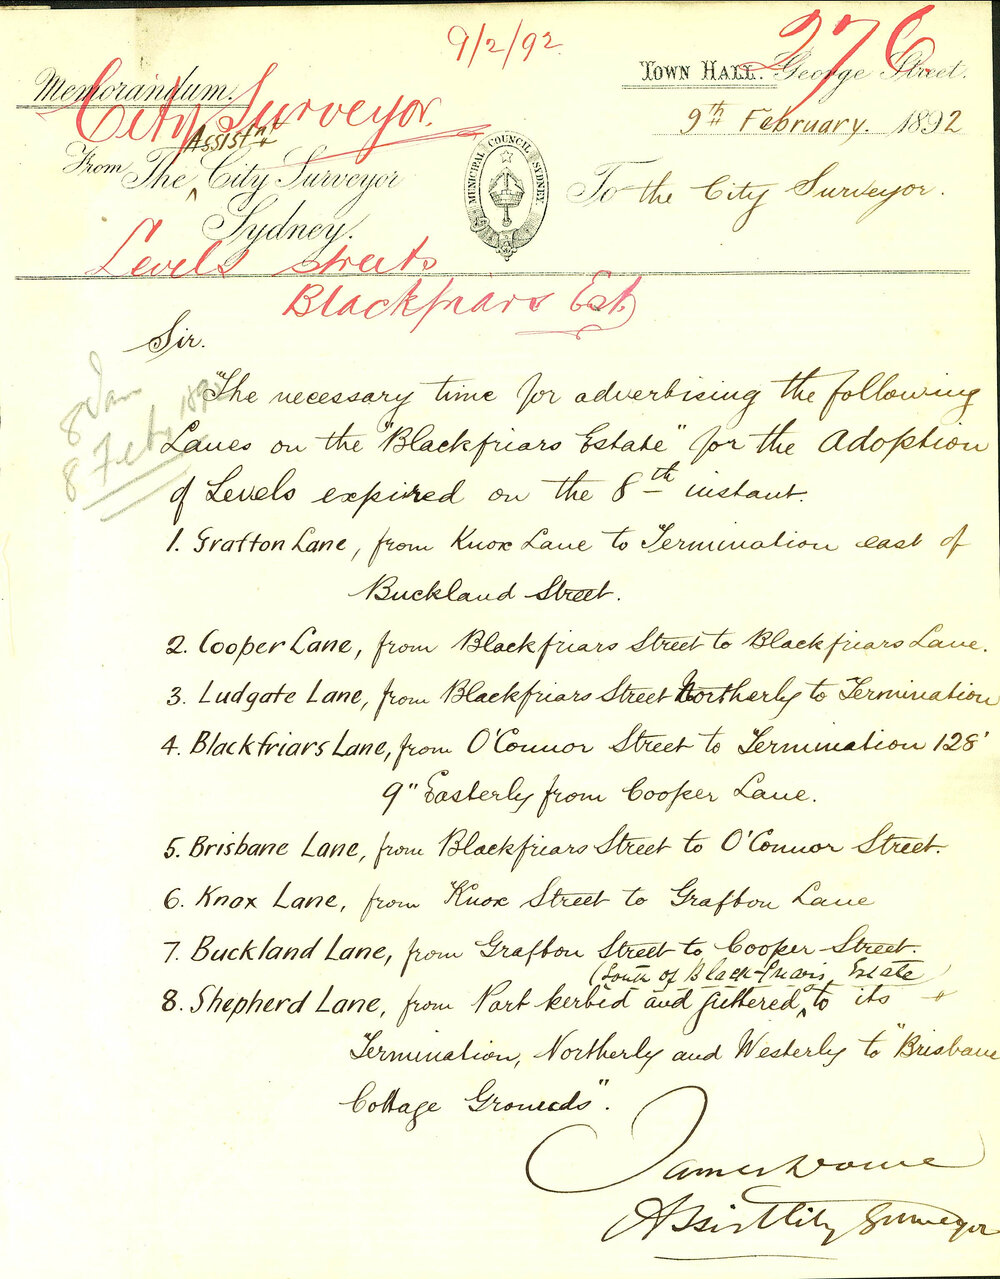 9/2/92
276
Memorandum.
Town Hall. George Street.
City Surveyor.
9th February. 1892
Assistnt
From The City Surveyor
Sydney.
MUNICIPAL COUNCIL SYDNEY.
To the City Surveyor.
Levels streets
Blackfriars Est.
Sir.
8 Jan
8 Feby 1892
The necessary time for advertising the following
Lanes on the "Blackfriars Estate" for the Adoption
of Levels expired on the 8th instant.
1. Grafton Lane, from Knox Lane to Termination east of
Buckland Street.
2. Cooper Lane, from Blackfriars Street to Blackfriars Lane.
3. Ludgate Lane, from Blackfriars Street Northerly to Termination
4. Blackfriars Lane, from O'Connor Street to Termination 128'
9" Easterly from Cooper Lane.
5. Brisbane Lane, from Blackfriars Street to O'Connor Street.
6. Knox Lane, from Knox Street to Grafton Lane
7. Buckland Lane, from Grafton Street to Cooper Street.
(South of Black-friars Estate)
8. Shepherd Lane, from Part kerbed and guttered, to its
Termination, Northerly and Westerly to "Brisbane
Cottage Grounds".
James
Assist City Surveyor